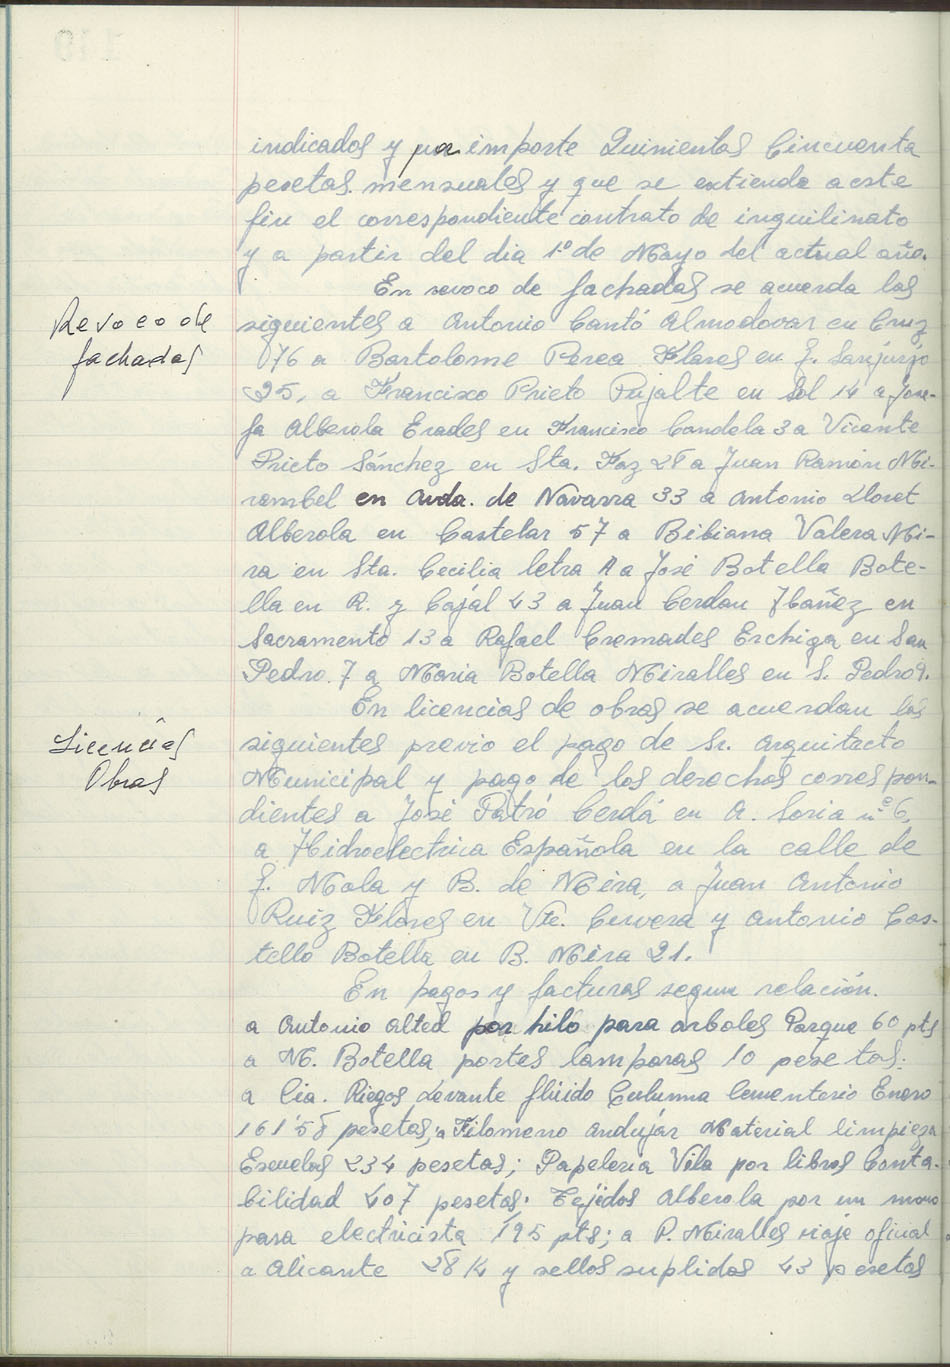 indicados y por importe Quinientas Cincuenta
pesetas mensuales y que se extienda a este
fin el correspondiente contrato de inquilinato
y a partir del dia 1º de Mayo del actual año.
En revoco de fachadas se acuerda las
Revoco de
fachadas
siguientes a Antonio Cantó Almodovar en Cruz
76 a Bartolome Perea Flores en G. Sanjurjo
25, a Francisco Prieto Pujalte en Sol 14 a Jose-
fa Alberola Erades en Francisco Candela 3 a Vicente
Prieto Sánchez en Sta. Faz 28 a Juan Ramón Mi-
rambel en Avda. de Navarra 33 a Antonio Lloret
Alberola en Castelar 57 a Bibiana Valera Mi-
ra en Sta. Cecilia letra A a José Botella Bote-
lla en R. y Cajal 43 a Juan Cerdan Ibañez en
Sacramento 13 a Rafael Cremades Erchiga en San
Pedro 7 a Maria Botella Miralles en S. Pedro 9.
En licencias de obras se acuerdan las
Licencias
Obras
siguientes previo el pago de Sr. Arquitecto
Municipal y pago de los derechos correspon-
dientes a José Patró Cerdá en A. Soria nº 6,
a Hidroelectrica Española en la calle de
G. Mola y B. de Mira, a Juan Antonio
Ruiz Flores en Vte. Cervera y Antonio Cos-
tello Botella en B. Mira 21.
En pagos y facturas segun relación.
a Antonio Alted por hilo para arboles Parque 60 pts
a M. Botella portes lamparas 10 pesetas.
a Cia. Riegos Levante flúido Columna Cementerio Enero
161'58 pesetas; a Filomeno Andújar Material limpieza
Escuelas 234 pesetas; Papeleria Vila por libros Conta-
bilidad 407 pesetas; Tejidos Alberola por un mono
para electricista 195 pts; a P. Miralles viaje oficial
a Alicante 28'14 y sellos suplidos 43 pesetas